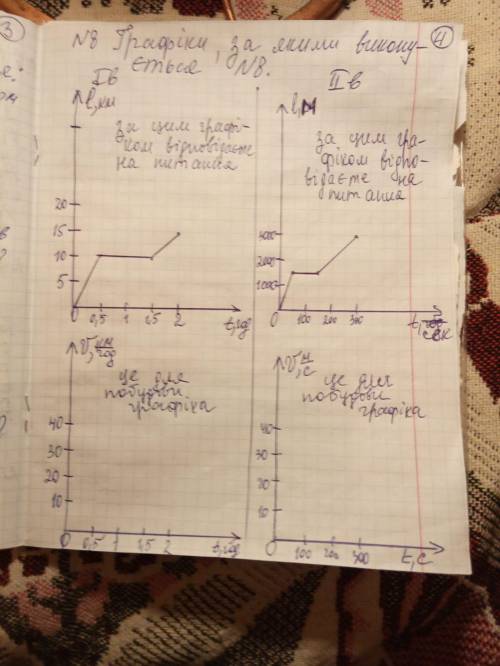 4
3
N8 Графіки, за якими викону-
ється N8.
Iв
IIв
l, км
за цим графі-
ком відповідаєте
на питання
20
15
10
5
0 0,5 1 1,5 2 t, год
l, м
за цим гра-
фіком відпо-
відаєте на
питання
4000
2000
1000
0 100 200 300 t, сек
V, км/год
це для
побудови
графіка
40
30
20
10
0 0,5 1 1,5 2 t, год
V, м/с
це для
побудови
графіка
40
30
20
10
0 100 200 300 t, с